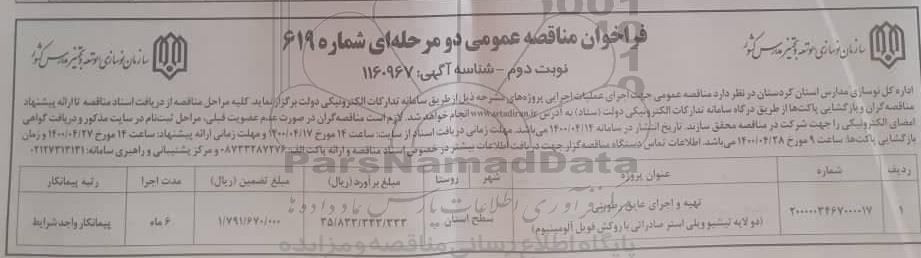 فراخوان مناقصه عمومی دو مرحله‌ای شماره ۶۱۹
نوبت دوم - شناسه آگهی: ۱۱۶۰۹۶۷
سازمان نوسازی، توسعه و تجهیز مدارس کشور
سازمان نوسازی، توسعه و تجهیز مدارس کشور
اداره کل نوسازی مدارس استان کردستان در نظر دارد مناقصه عمومی جهت اجرای عملیات اجرایی پروژه‌های مشرحه ذیل از طریق سامانه تدارکات الکترونیکی دولت برگزار نماید. کلیه مراحل مناقصه از دریافت اسناد مناقصه تا ارائه پیشنهاد
مناقصه گران و بازگشایی پاکت‌ها از طریق درگاه سامانه تدارکات الکترونیکی دولت (ستاد) به آدرس www.setadiran.ir انجام خواهد شد. لازم است مناقصه‌گران در صورت عدم عضویت قبلی، مراحل ثبت‌نام در سایت مذکور و دریافت گواهی
امضای الکترونیکی را جهت شرکت در مناقصه محقق سازند. تاریخ انتشار در سامانه ۱۴۰۰/۰۴/۱۴ می‌باشد. مهلت زمانی دریافت اسناد از سایت: ساعت ۱۴ مورخ ۱۴۰۰/۰۴/۱۷ و مهلت زمانی ارائه پیشنهاد: ساعت ۱۴ مورخ ۱۴۰۰/۰۴/۲۷ و زمان
بازگشایی پاکت‌ها: ساعت ۹ مورخ ۱۴۰۰/۰۴/۲۸ می‌باشد. اطلاعات تماس دستگاه مناقصه‌گزار جهت دریافت اطلاعات بیشتر در خصوص اسناد مناقصه و ارائه پاکت الف: ۰۸۷۳۳۲۸۷۲۷۶ و مرکز پشتیبانی و راهبری سامانه: ۰۲۱۲۷۳۱۳۱۳۱
ردیف شماره عنوان پروژه شهر روستا مبلغ برآورد (ریال) مبلغ تضمین (ریال) مدت اجرا رتبه پیمانکار
۱ ۲۰۰۰۰۰۳۴۶۷۰۰۰۰۱۷ تهیه و اجرای عایق رطوبتی سطح استان ۳۵/۸۳۳/۳۳۳/۳۳۳ ۱/۷۹۱/۶۷۰/۰۰۰ ۶ ماه پیمانکار واجد شرایط
(دو لایه تیشیو و پلی استر صادراتی با روکش فویل آلومینیوم)
ParsNamadData
فرآوری اطلاعات پارس نماد داده ها
پایگاه اطلاع رسانی مناقصه و مزایده